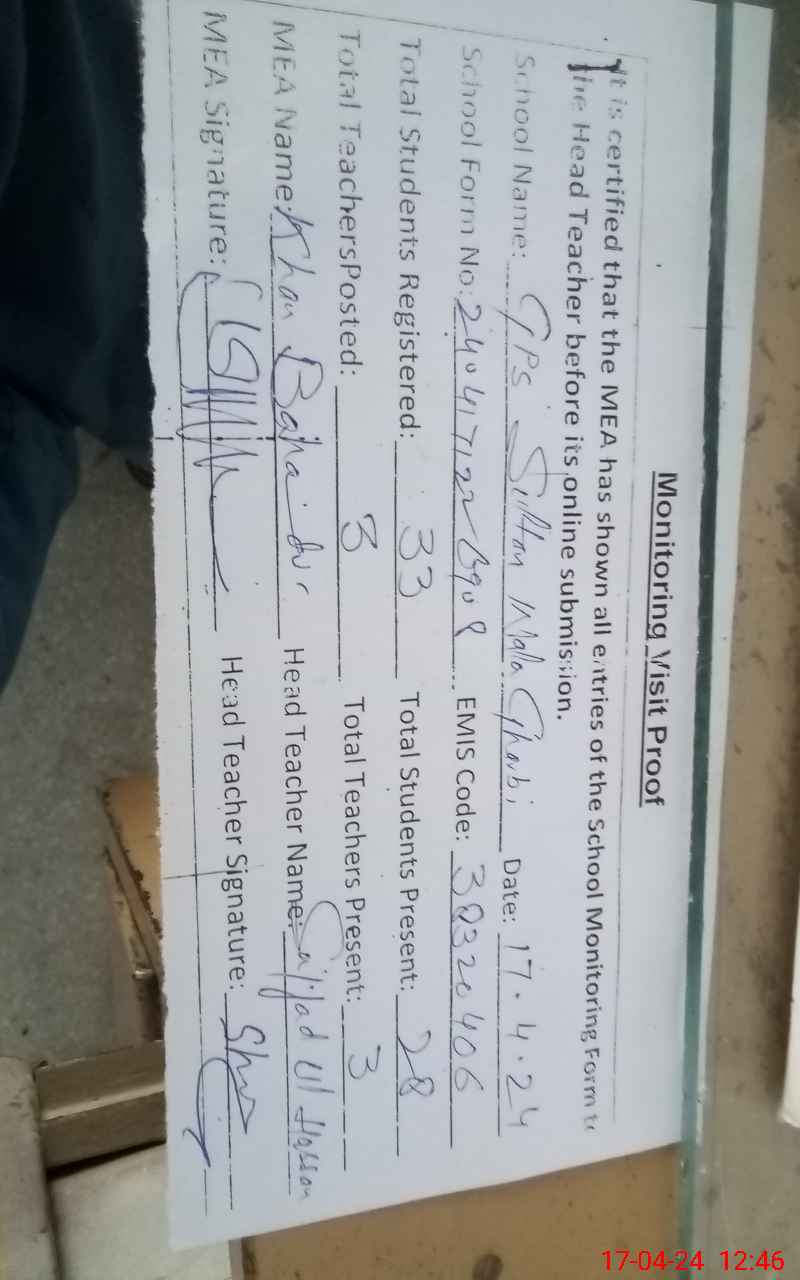 Monitoring Visit Proof
It is certified that the MEA has shown all entries of the School Monitoring Form to
the Head Teacher before its online submission.
School Name: GPS Sultan Mala Gharbi Date: 17.4.24
School Form No: EMIS Code: 38320406
Total Students Registered: 33 Total Students Present: 28
Total Teachers Posted: 3 Total Teachers Present: 3
MEA Name: Khan Bahadur Head Teacher Name: Sajjad Ul Hassan
MEA Signature: Head Teacher Signature:
17-04-24 12:46